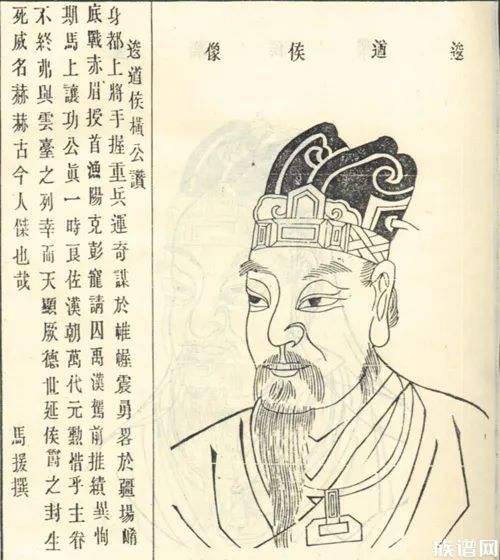 逡道侯像
逡道侯橫公讚
身都上將手握重兵運奇謀於帷幄震勇畧於疆場崤
底戰赤眉授首漁陽克彭寵請囚禹漢駕前推績異恂
期馬上讓功公眞一時良佐漢朝萬代元勳惜乎主眷
不終弗與雲臺之列幸而天顯厥德世延侯爵之封生
死威名赫赫古今人傑也哉
馬援撰
族谱网